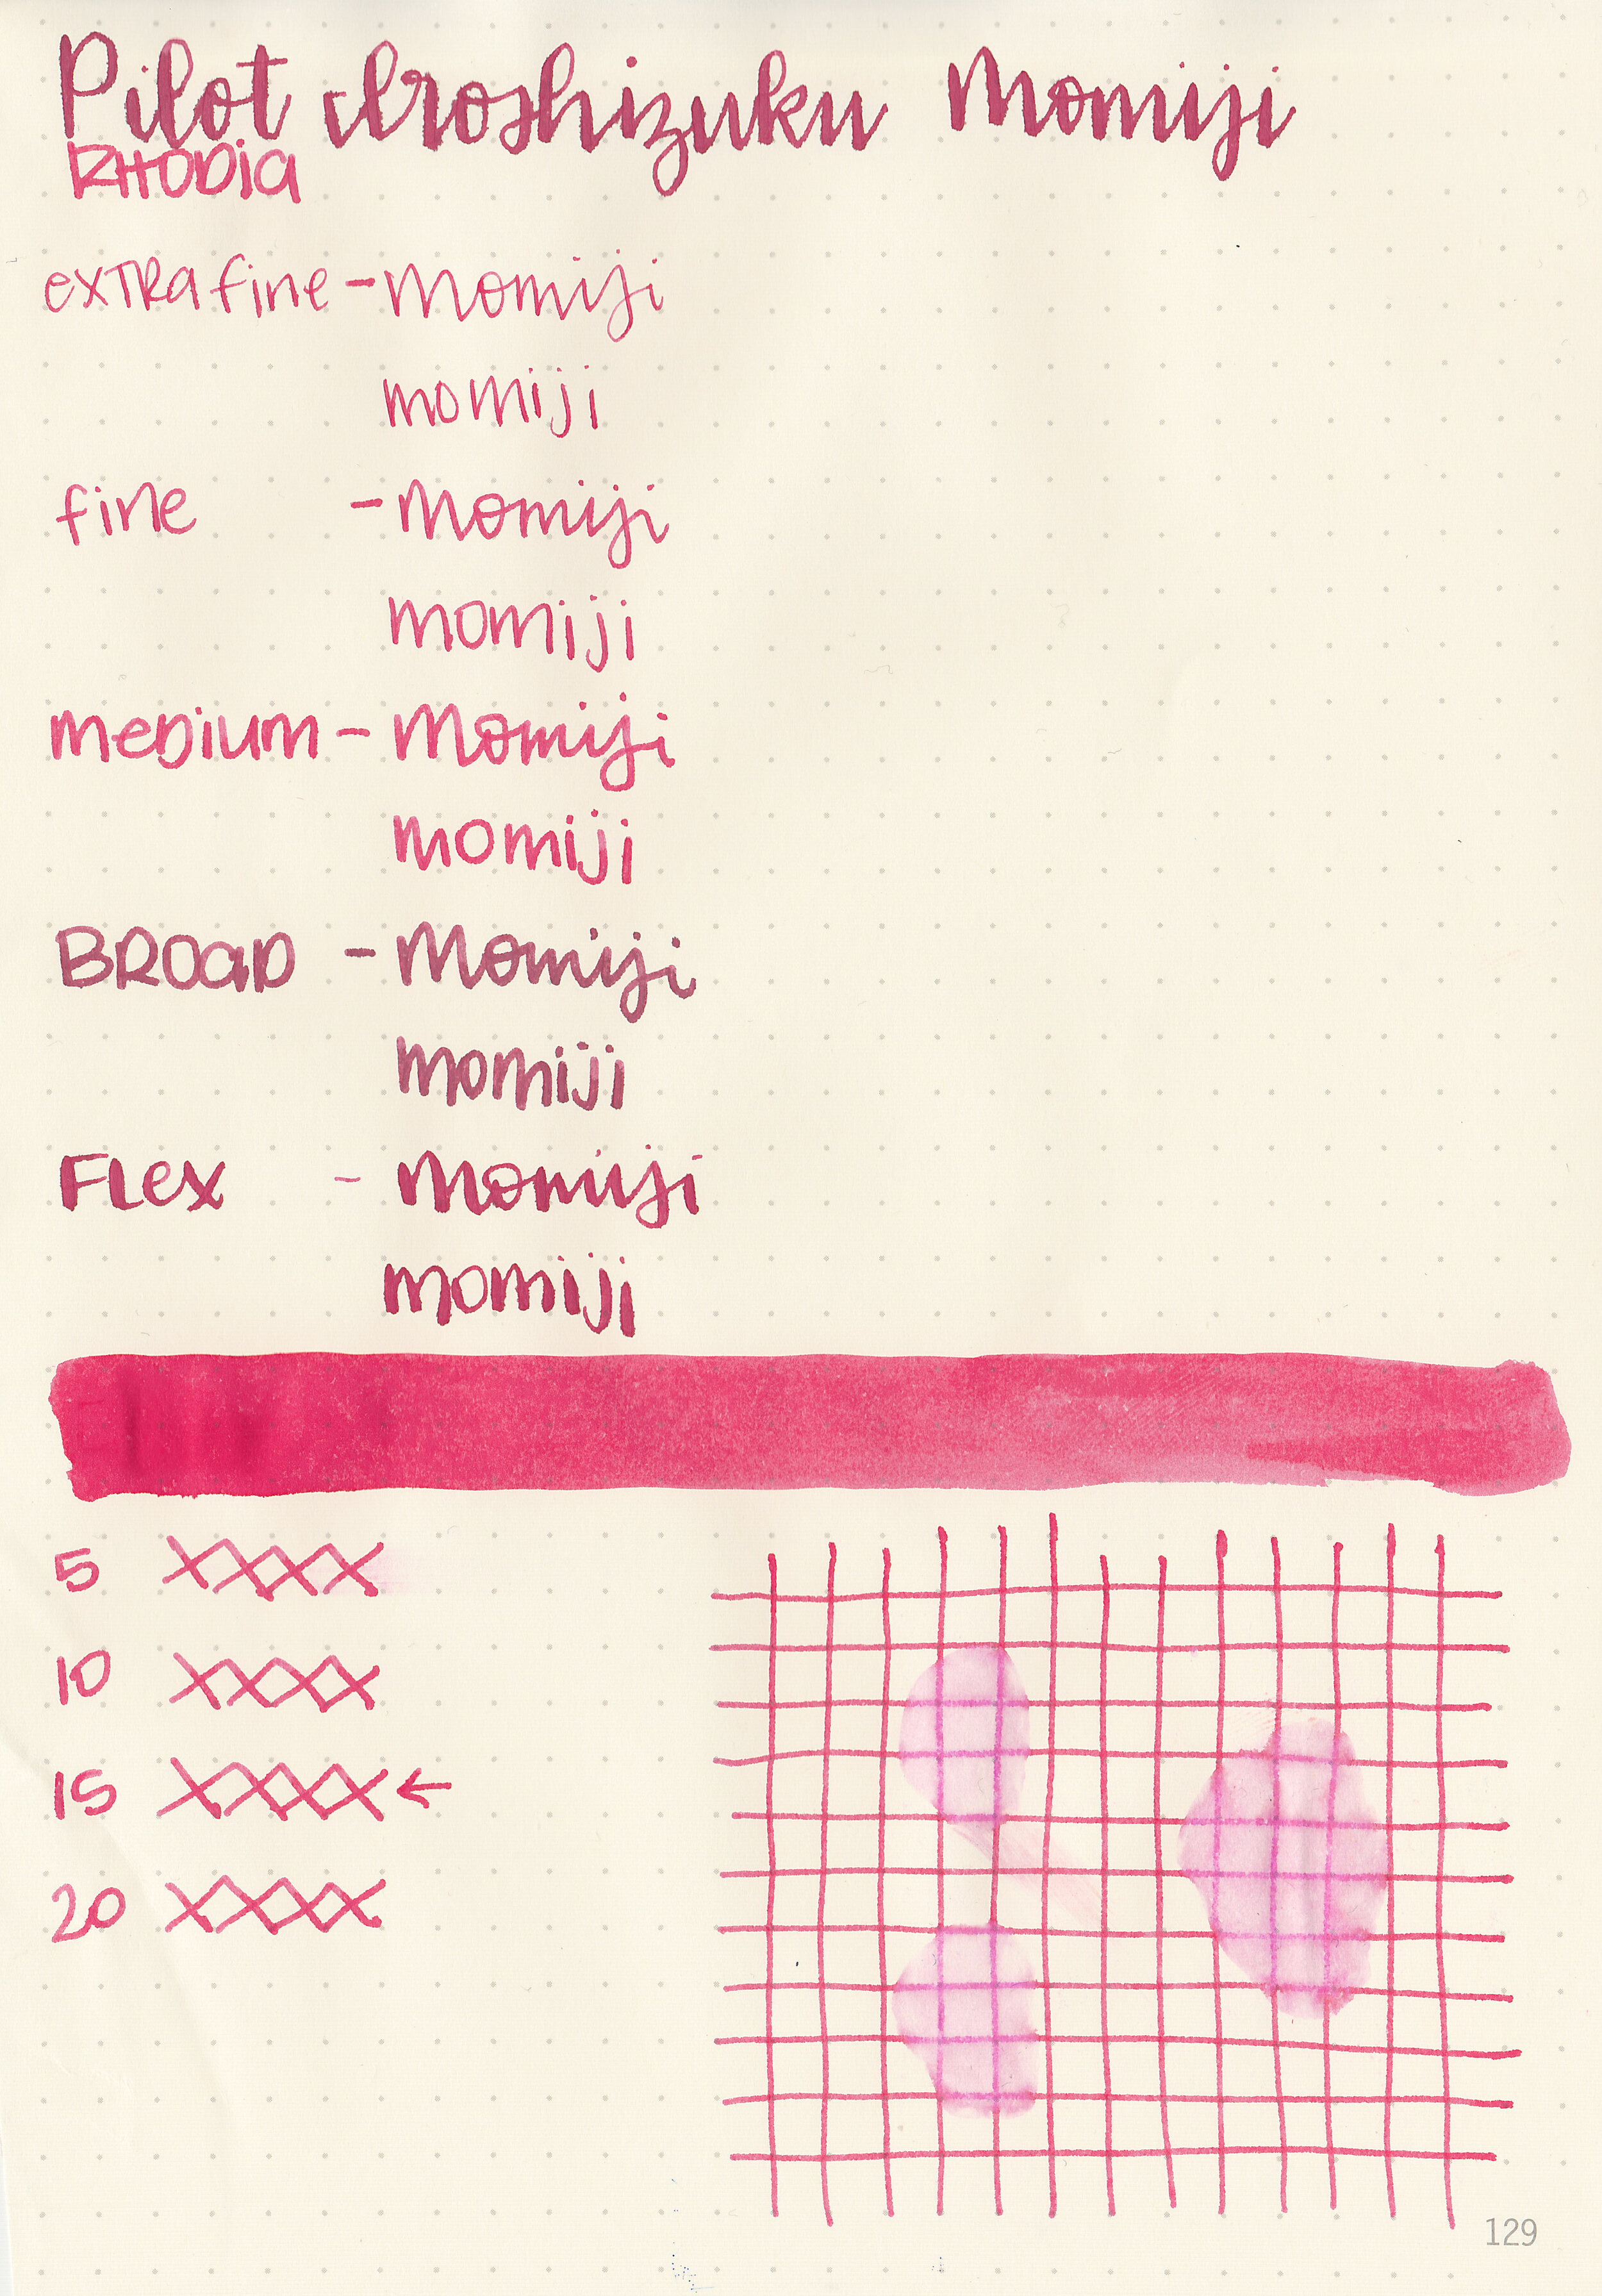 Pilot Iroshizuku Momiji
RHODIA
exTRa fine - Momiji
momiji
fine - Momiji
momiji
meDium - Momiji
momiji
BROaD - Momiji
momiji
FLex - Momiji
momiji
5 XXXX
10 XXXX
15 XXXX ←
20 XXXX
129